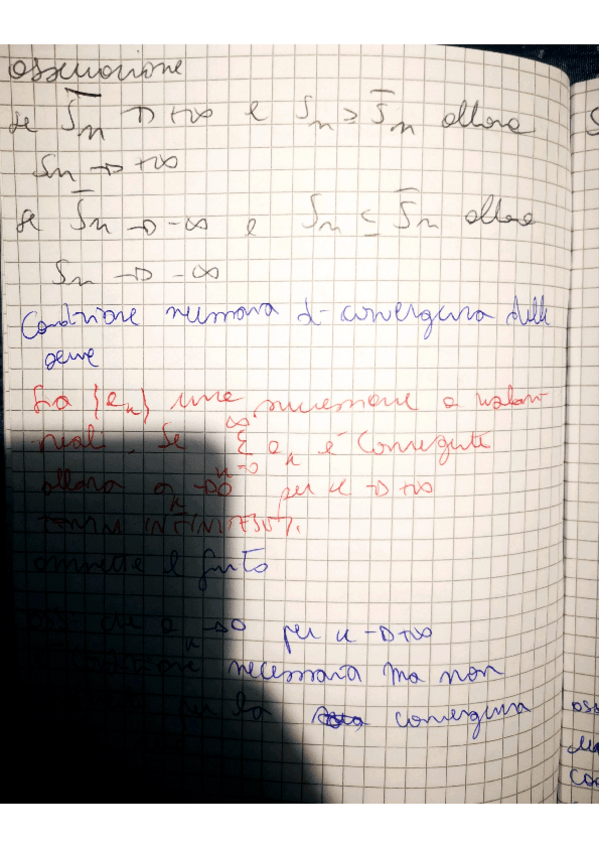 Osservazione
se S̄n → +∞ e Sn ≥ S̄n allora
Sn → +∞
se S̄n → -∞ e Sn ≤ S̄n allora
Sn → -∞
Condizione necessaria di convergenza delle
serie
Sia {ak} una successione a valori
reali. Se ∞ Σ k=0 ak è convergente
allora ak → 0 per k → +∞
INFINITESIMI.
ammette il finito
che ak → 0 per k → +∞
necessaria ma non
per la convergenza
oss